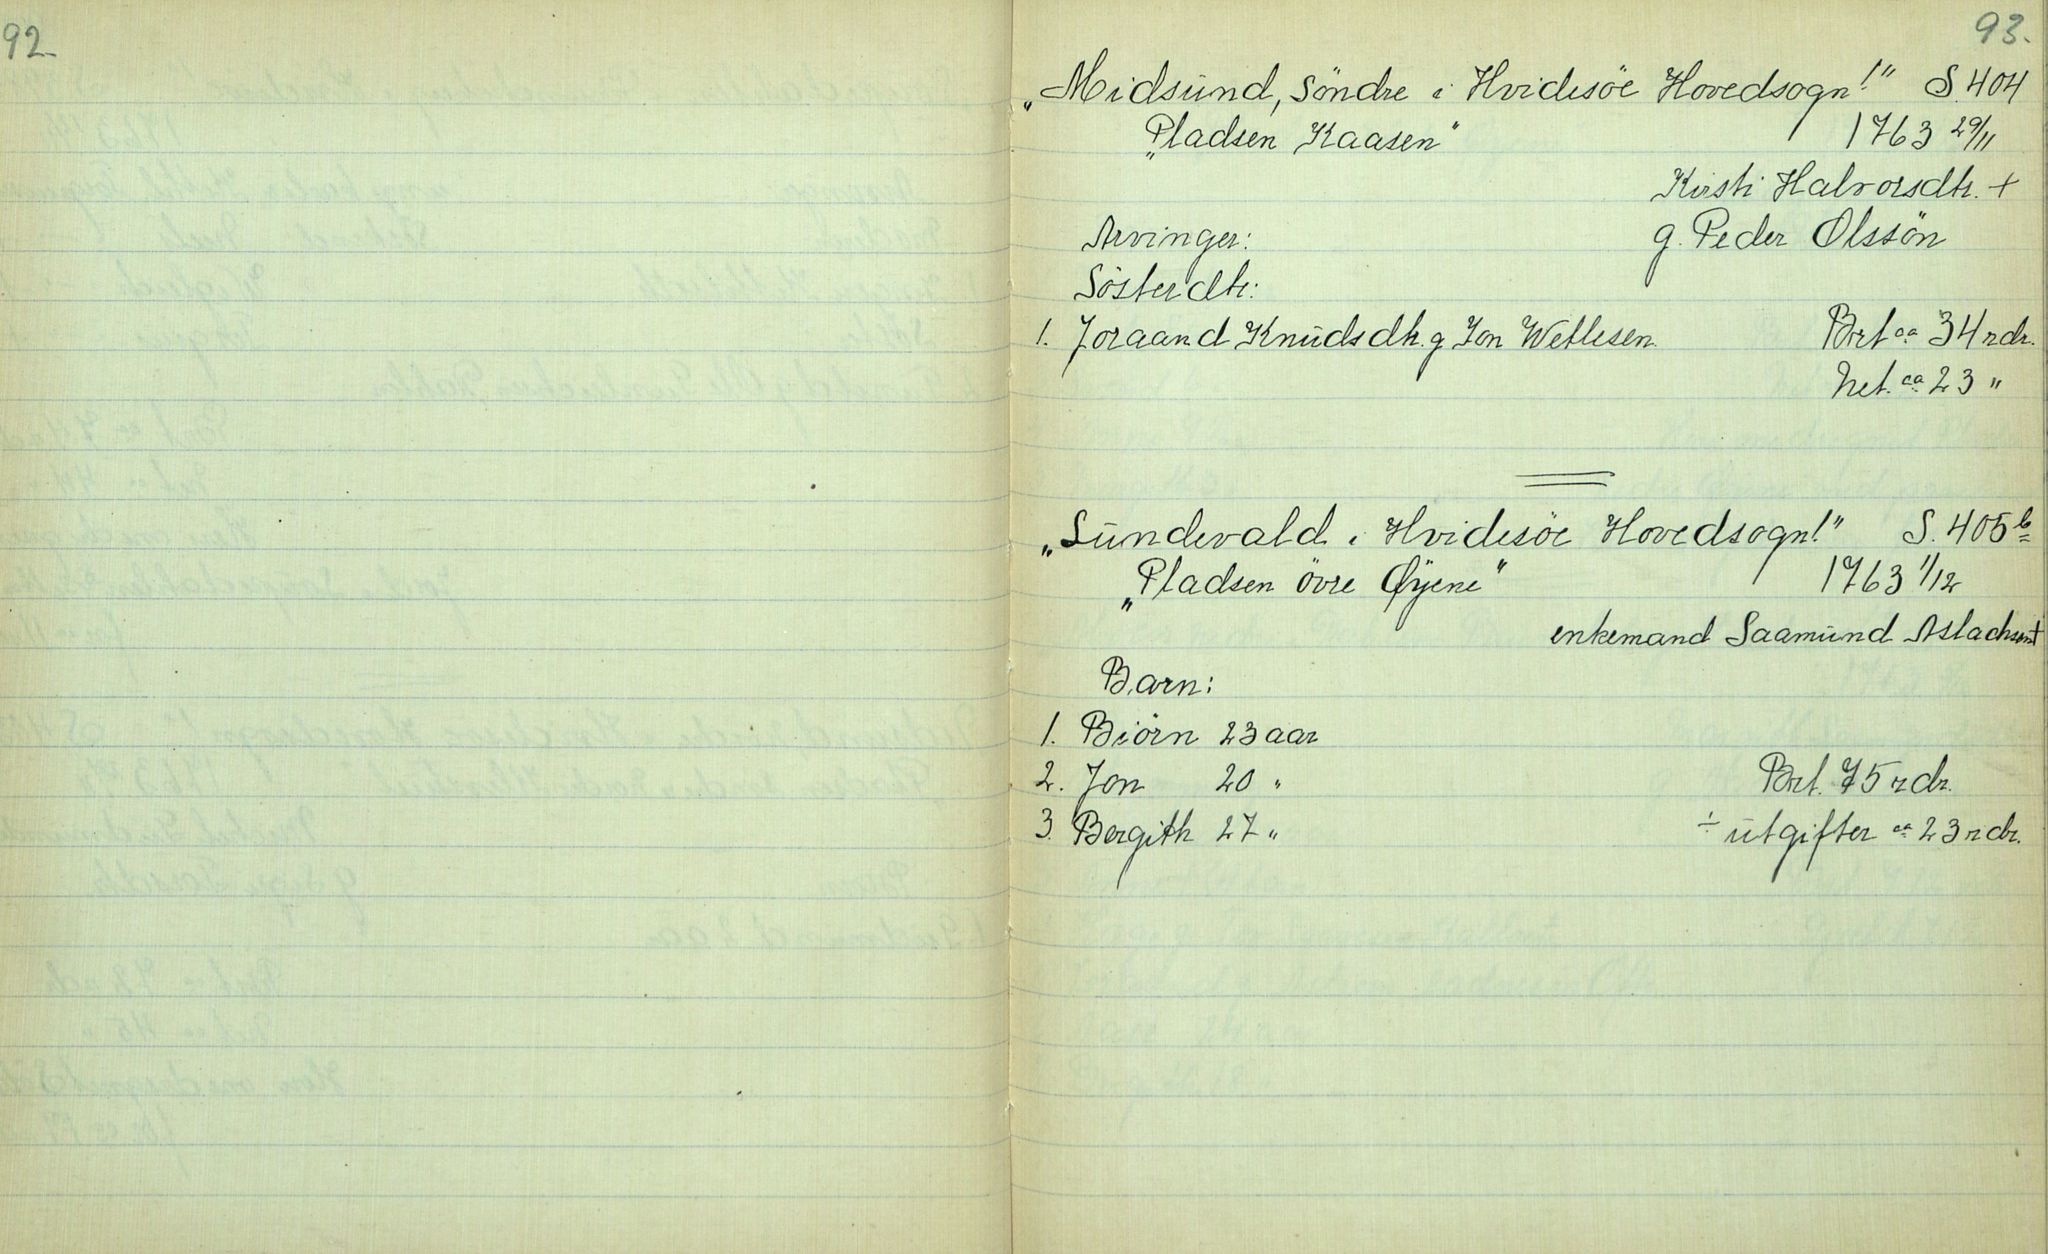 92.
93.
„Midsund, Söndre i Hvidesöe Hovedsogn!" S. 404
„Pladsen Kaasen" 1763 29/11
Kirsti Halvorsdtr. +
Arvinger: g. Peder Olssön
Sösterdtr:
1. Joraand Knudsdtr. g Jon Wetlesen. Brt ca 34 rdr.
Net. ca 23 "
„Sundevald i Hvidesöe Hovedsogn!" S. 405 b
„Pladsen övre Øyene" 1763 1/12
enkemand Saamund Aslachsen +
Barn:
1. Biörn 23 aar
2. Jon 20 " Brt. 75 rdr.
3 Bergith 27 " ÷ utgifter ca 23 rdr.